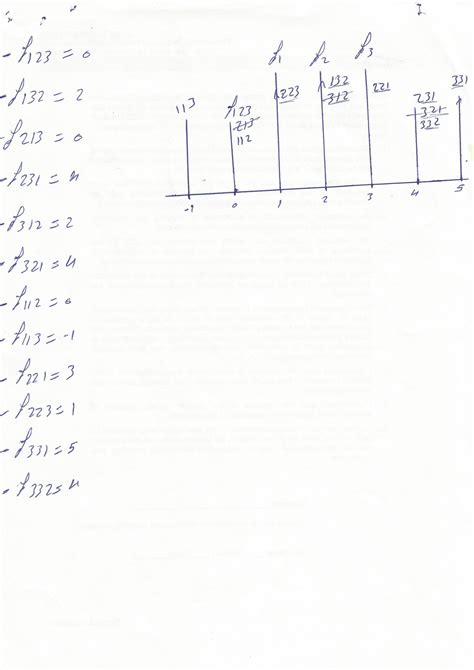 I
- f123 = 0
- f132 = 2
- f213 = 0
- f231 = 4
- f312 = 2
- f321 = 4
- f112 = 0
- f113 = -1
- f221 = 3
- f223 = 1
- f331 = 5
- f332 = 4
f1 f2 f3
113 f123 223 132 221 231 331
213 312 321
112 332
-1 0 1 2 3 4 5